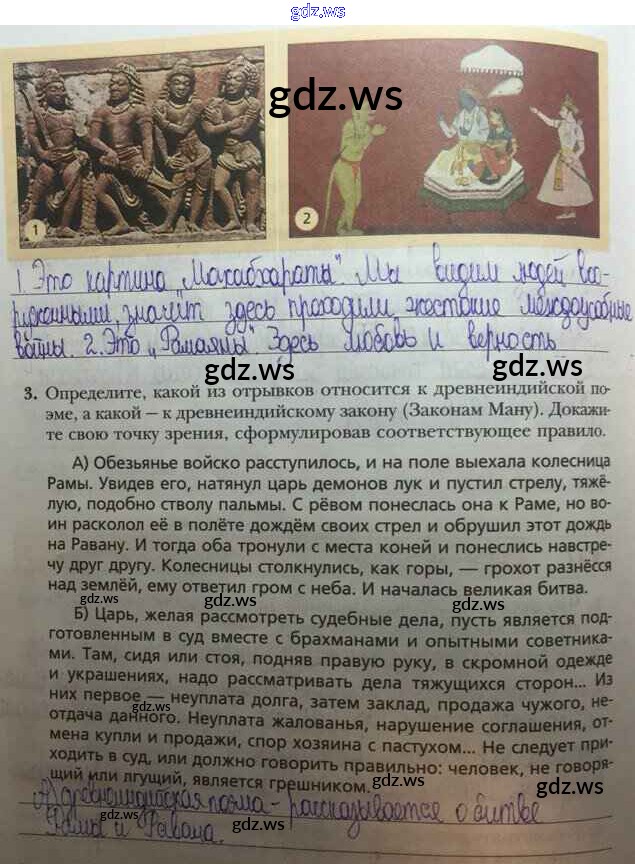 gdz.ws
gdz.ws
1
2
1. Это картина „Махабхараты". Мы видим людей воо-
руженными, значит здесь проходили жестокие междоусобные
войны. 2. Это „Рамаяны". Здесь любовь и верность
gdz.ws
gdz.ws
3. Определите, какой из отрывков относится к древнеиндийской по-
эме, а какой — к древнеиндийскому закону (Законам Ману). Докажи-
те свою точку зрения, сформулировав соответствующее правило.
А) Обезьянье войско расступилось, и на поле выехала колесница
Рамы. Увидев его, натянул царь демонов лук и пустил стрелу, тяжё-
лую, подобно стволу пальмы. С рёвом понеслась она к Раме, но во-
ин расколол её в полёте дождём своих стрел и обрушил этот дождь
на Равану. И тогда оба тронули с места коней и понеслись навстре-
чу друг другу. Колесницы столкнулись, как горы, — грохот разнёсся
над землёй, ему ответил гром с неба. И началась великая битва.
gdz.ws
gdz.ws
gdz.ws
Б) Царь, желая рассмотреть судебные дела, пусть является под-
готовленным в суд вместе с брахманами и опытными советника-
ми. Там, сидя или стоя, подняв правую руку, в скромной одежде
и украшениях, надо рассматривать дела тяжущихся сторон... Из
них первое — неуплата долга, затем заклад, продажа чужого, не-
отдача данного. Неуплата жалованья, нарушение соглашения, от-
мена купли и продажи, спор хозяина с пастухом... Не следует при-
ходить в суд, или должно говорить правильно: человек, не говоря-
щий или лгущий, является грешником.
gdz.ws
gdz.ws
А) древнеиндийская поэма - рассказывается о битве
Рамы и Равана.
gdz.ws
gdz.ws